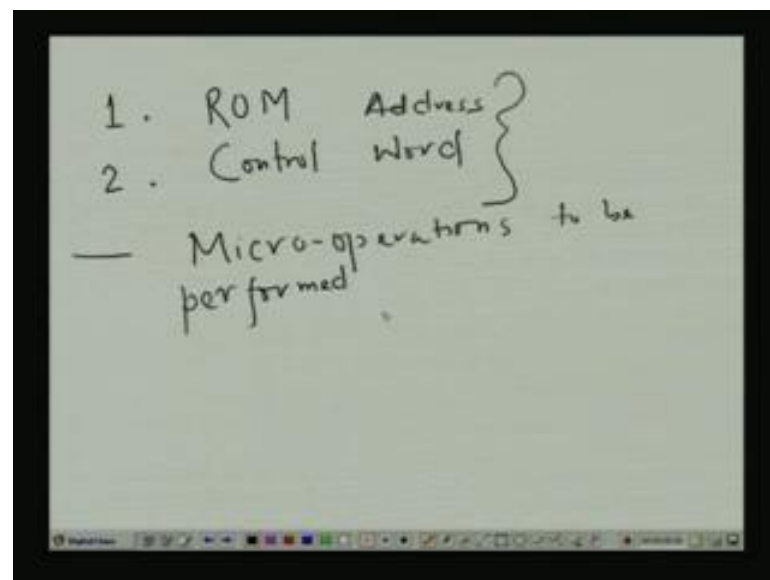 1. ROM Address
2. Control Word
— Micro-operations to be
performed